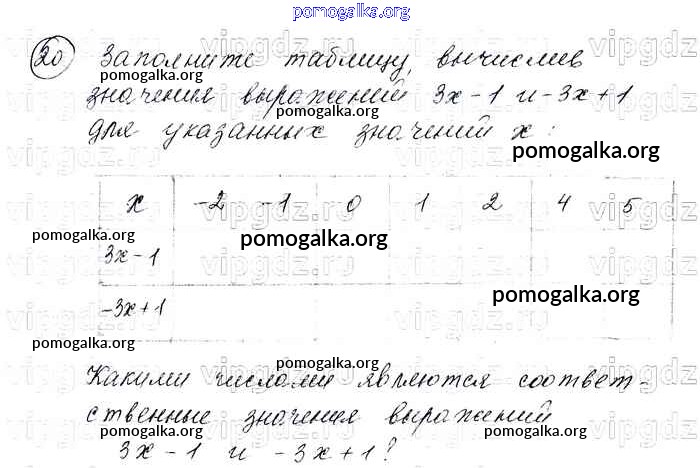 pomogalka.org
20 Заполните таблицу, вычислив
pomogalka.org
значения выражений 3x-1 и -3x+1
pomogalka.org
для указанных значений x:
pomogalka.org
x -2 -1 0 1 2 4 5
pomogalka.org pomogalka.org
3x-1
-3x+1 pomogalka.org
pomogalka.org
pomogalka.org
Какими числами являются соответ-
ственные значения выражений
pomogalka.org pomogalka.org pomogalka.org
3x-1 и -3x+1?
vipgdz.ru